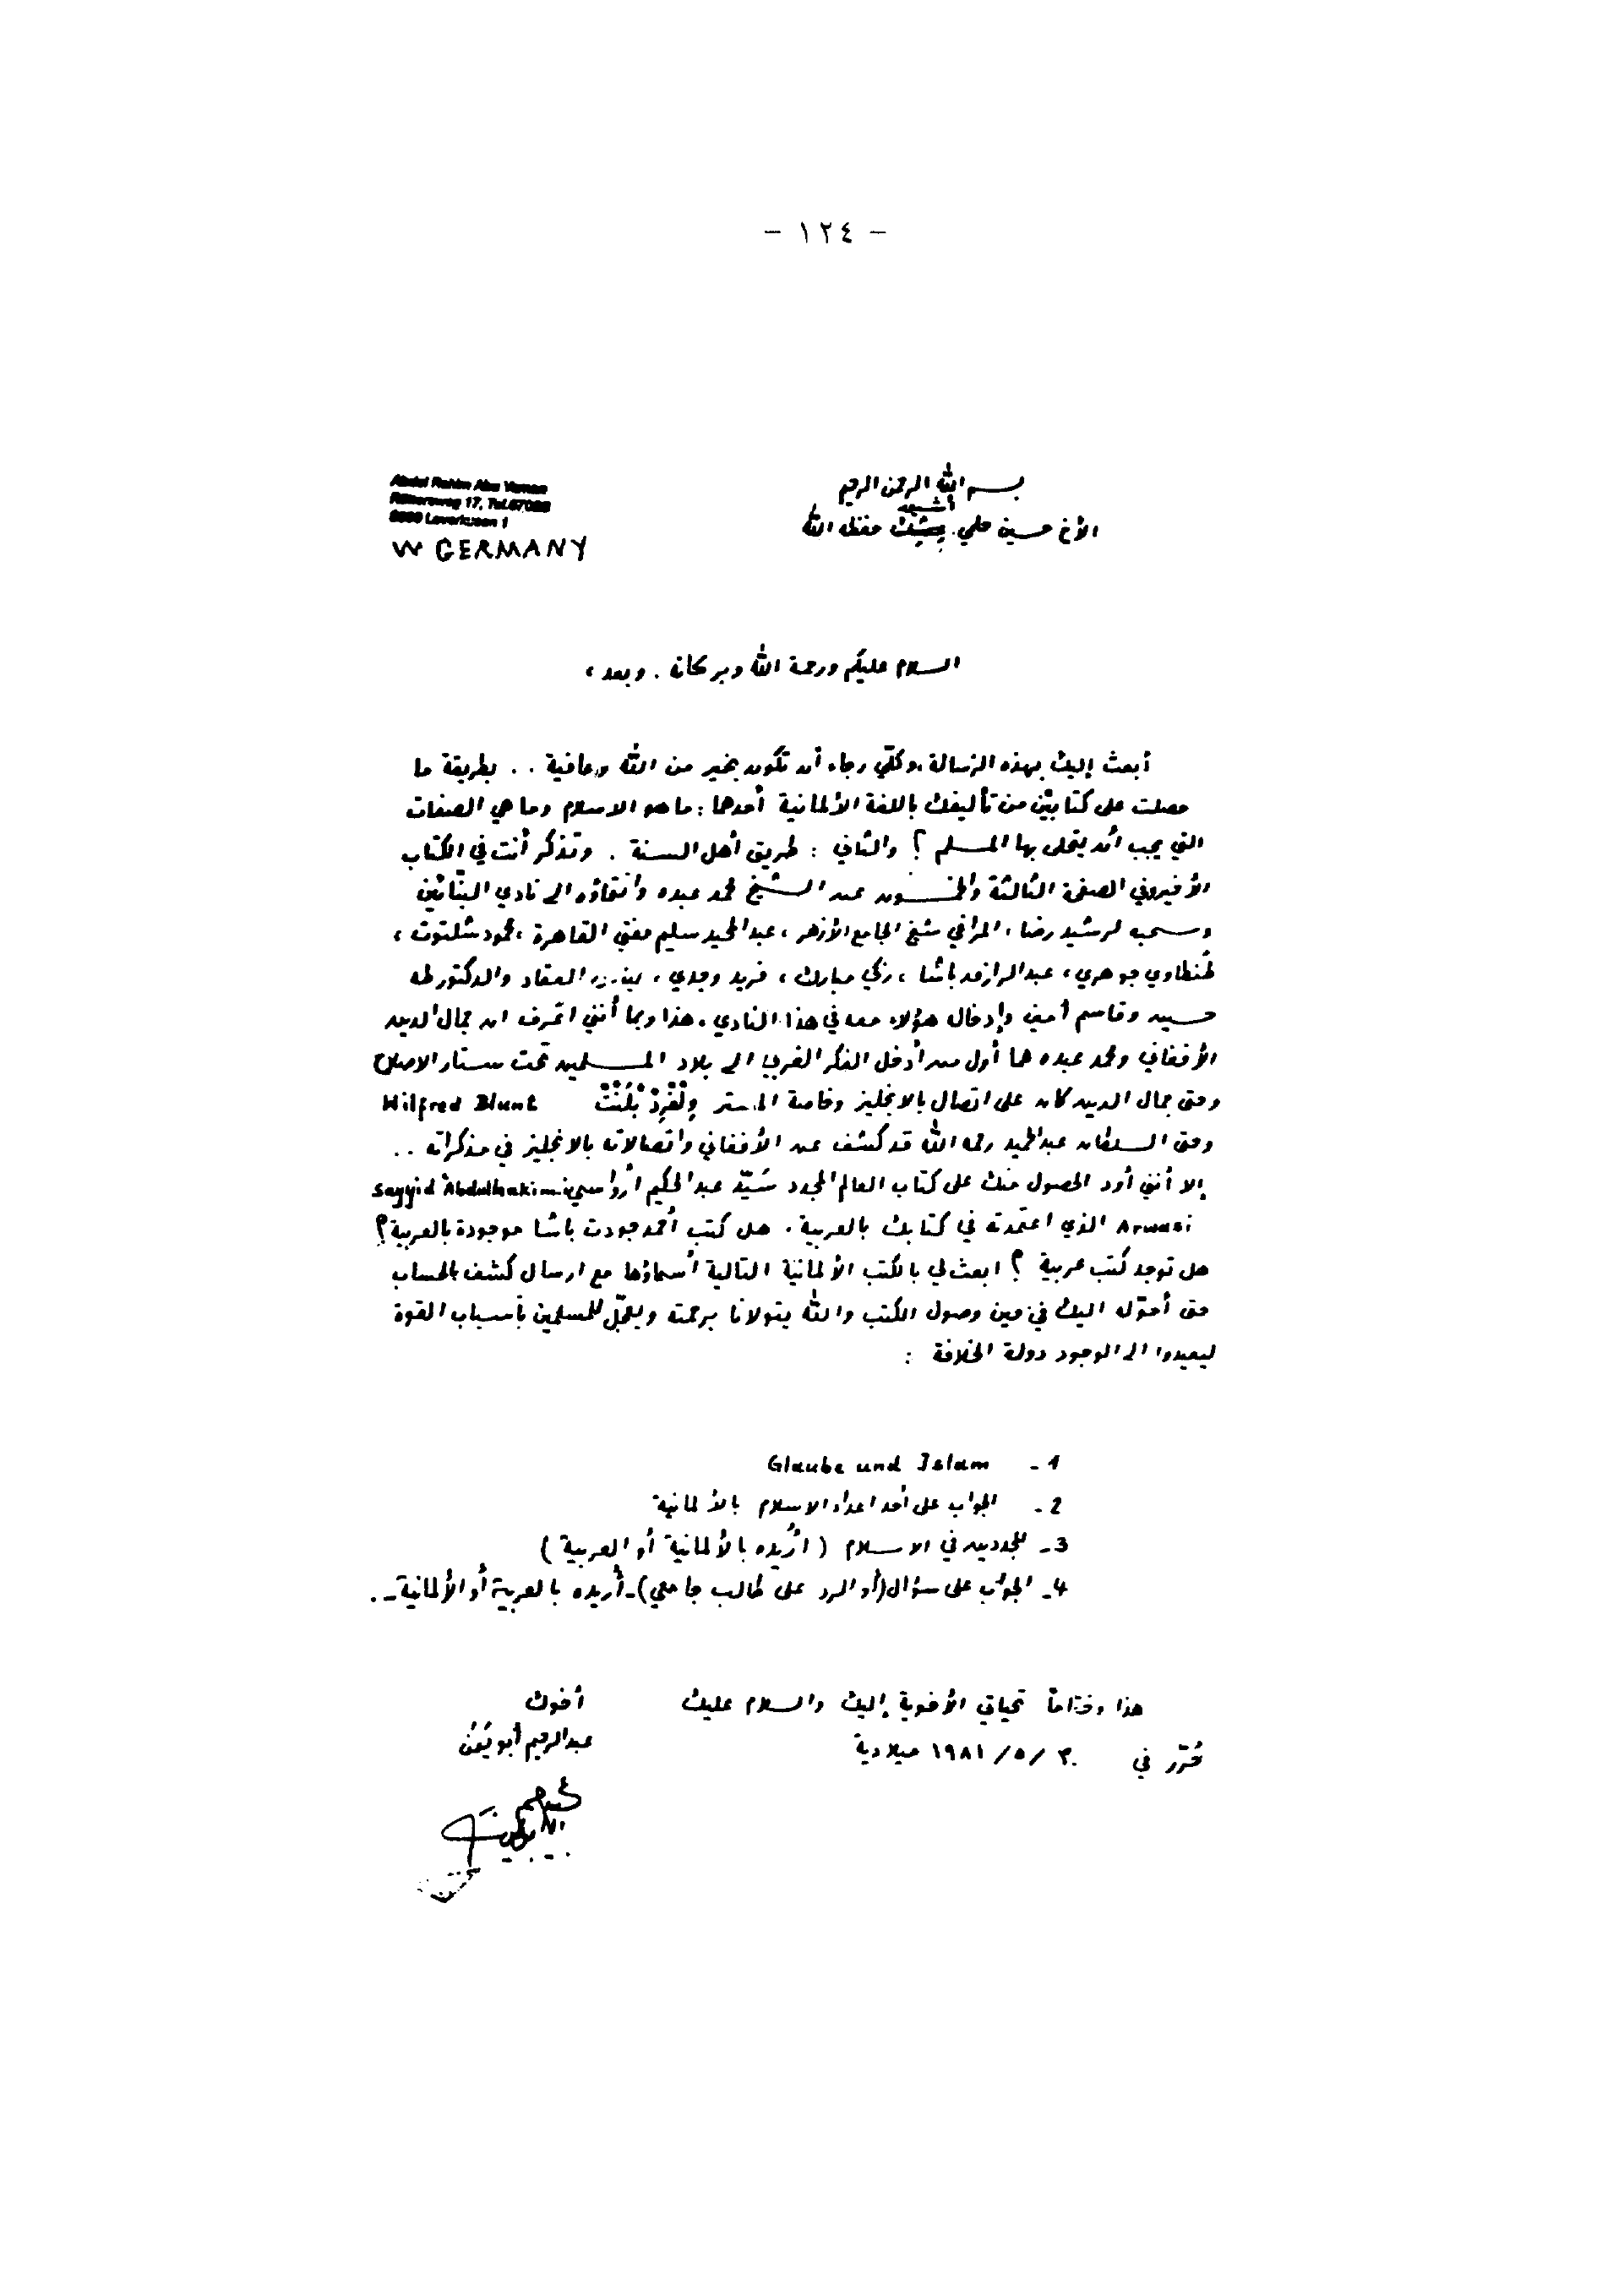 - ١٢٤ -
بسم الله الرحمن الرحيم
الأخ حسين حلمي إيشيق حفظه الله
Abdel Rahim Abu Yaman
17, Tel.67088
Leverkusen 1
W GERMANY
السلام عليكم ورحمة الله وبركاته . وبعد ،
أبعث إليك بهذه الرسالة ،وكلّي رجاء أن تكون بخير من الله وعافية . . بطريقة ما
حصلت على كتابيْن من تأليفك باللغة الألمانية أحدهما : ما هو الاسلام وما هي الصفات
التي يجب أن يتحلى بها المسلم ؟ والثاني : طريق أهل السنة . وتذكر أنت في الكتاب
الأخير وفي الصفحة الثالثة والخمسون عن الشيخ محمد عبده وانتماؤه الى نادي البنّائين
وسحبه لرشيد رضا ، المراغي شيخ الجامع الأزهر ، عبدالمجيد سليم مفتي القاهرة ، محمود شلتوت ،
طنطاوي جوهري ، عبدالرازق باشا ، زكي مبارك ، فريد وجدي ، العقاد والدكتور طه
حسين وقاسم أمين وإدخال هؤلاء معه في هذا النادي . هذا وبما أنني اعرف ان جمال الدين
الأفغاني ومحمد عبده هما أول من أدخل الفكر الغربي الى بلاد المسلمين تحت ستار الاصلاح
وحتى جمال الدين كان على اتصال بالانجليز وخاصة المستر وِلْفْرِدْ بْلُنْتْ Wilfred Blunt
وحتى السلطان عبدالحميد رحمه الله قد كشف عن الأفغاني واتصالاته بالانجليز في مذكراته . .
إلا أنني أود الحصول منك على كتاب العالم المجدد سَيّد عبدالحكيم أرواسي Sayyid Abdulhakim
Arwasi الذي اعتمدته في كتابك بالعربية . هل كتب أحمد جودت باشا موجودة بالعربية ؟
هل توجد كتب عربية ؟ ابعث لي بالكتب الألمانية التالية أسماؤها مع ارسال كشف بالحساب
حتى أحوّله اليك في حين وصول الكتب والله يتولانا برحمته ويعجّل للمسلمين بأسباب القوة
ليعيدوا الى الوجود دولة الخلافة :
1 - Glaube und Islam
2 - الجواب على أحد اعداء الاسلام بالألمانية
3 - المجددين في الاسلام ( اريده بالألمانية أو العربية )
4 - الجواب على سؤال (أو الرد على طالب جامعي) - أريده بالعربية أو الألمانية - .
هذا وختاماً تحياتي الأخوية إليك والسلام عليك
أخوك
عبدالرحيم أبو يَمَن
حُرّر في ٣٠ / ٥ / ١٩٨١ ميلادية